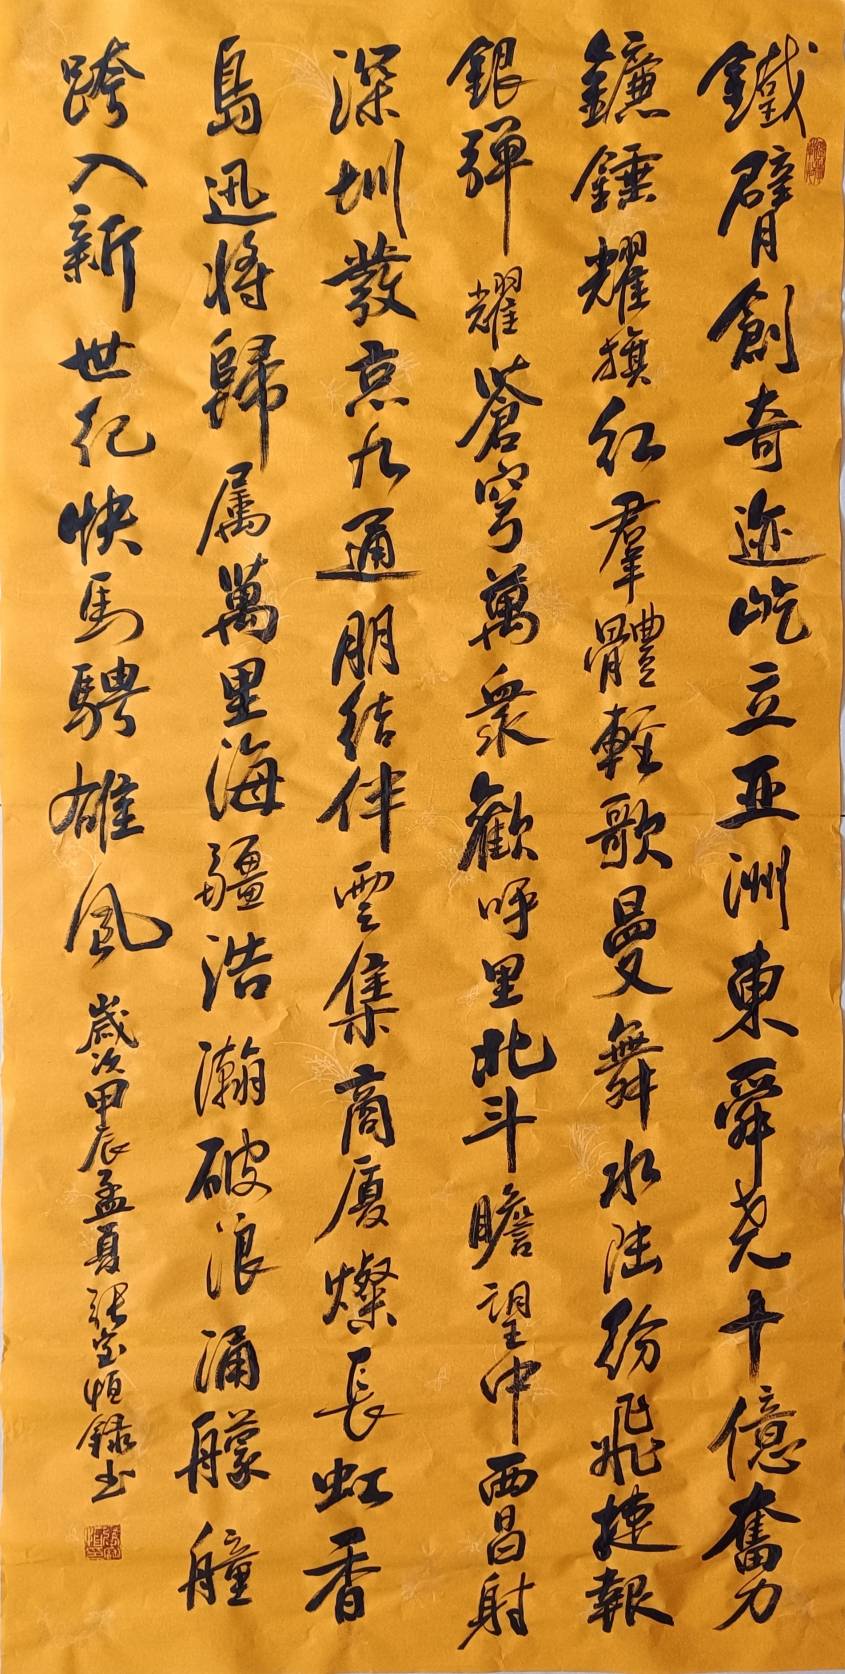 鐵臂創奇迹屹立亚洲東舜尧十億奮力
鐮錘耀旗红羣體輕歌曼舞水陆纷飛捷報
銀弹耀蒼穹萬衆歡呼里北斗瞻望中西昌射
深圳發京九通朋結伴雲集商厦燦長虹香
島迅将歸属萬里海疆浩瀚破浪涌艨艟
跨入新世纪快馬騁雄风
歲次甲辰孟夏張宝恒錄书